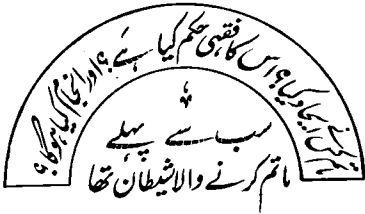 ماتم کس نے ایجاد کیا؟ اس کا فقہی حکم کیا ہے؟ اور انجام کیا ہوگا؟
سب سے پہلے
ماتم کرنے والا شیطان تھا